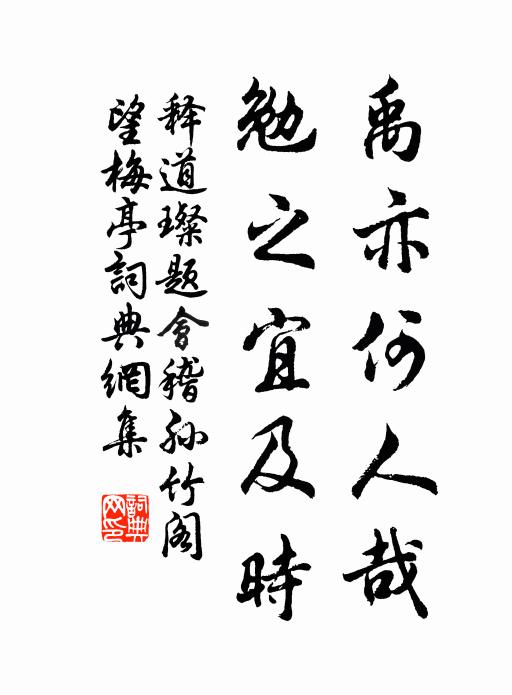 禹亦何人哉
勉之宜及時
释道璨题會稽孙竹阁
望梅亭詞典網集
詞典
网印